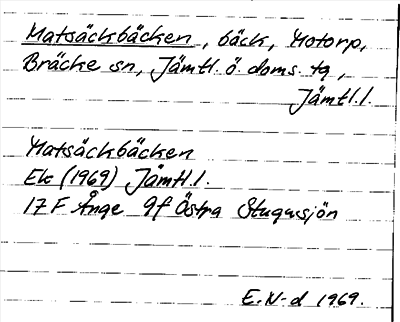 Matsäckbäcken, bäck, Motorp,
Bräcke sn, Jämtl. ö. doms. tg,
Jämtl.l.
Matsäckbäcken
Ek (1969) Jämtl.l.
17 F Ånge 9f Östra Stugusjön
E.N-d 1969.